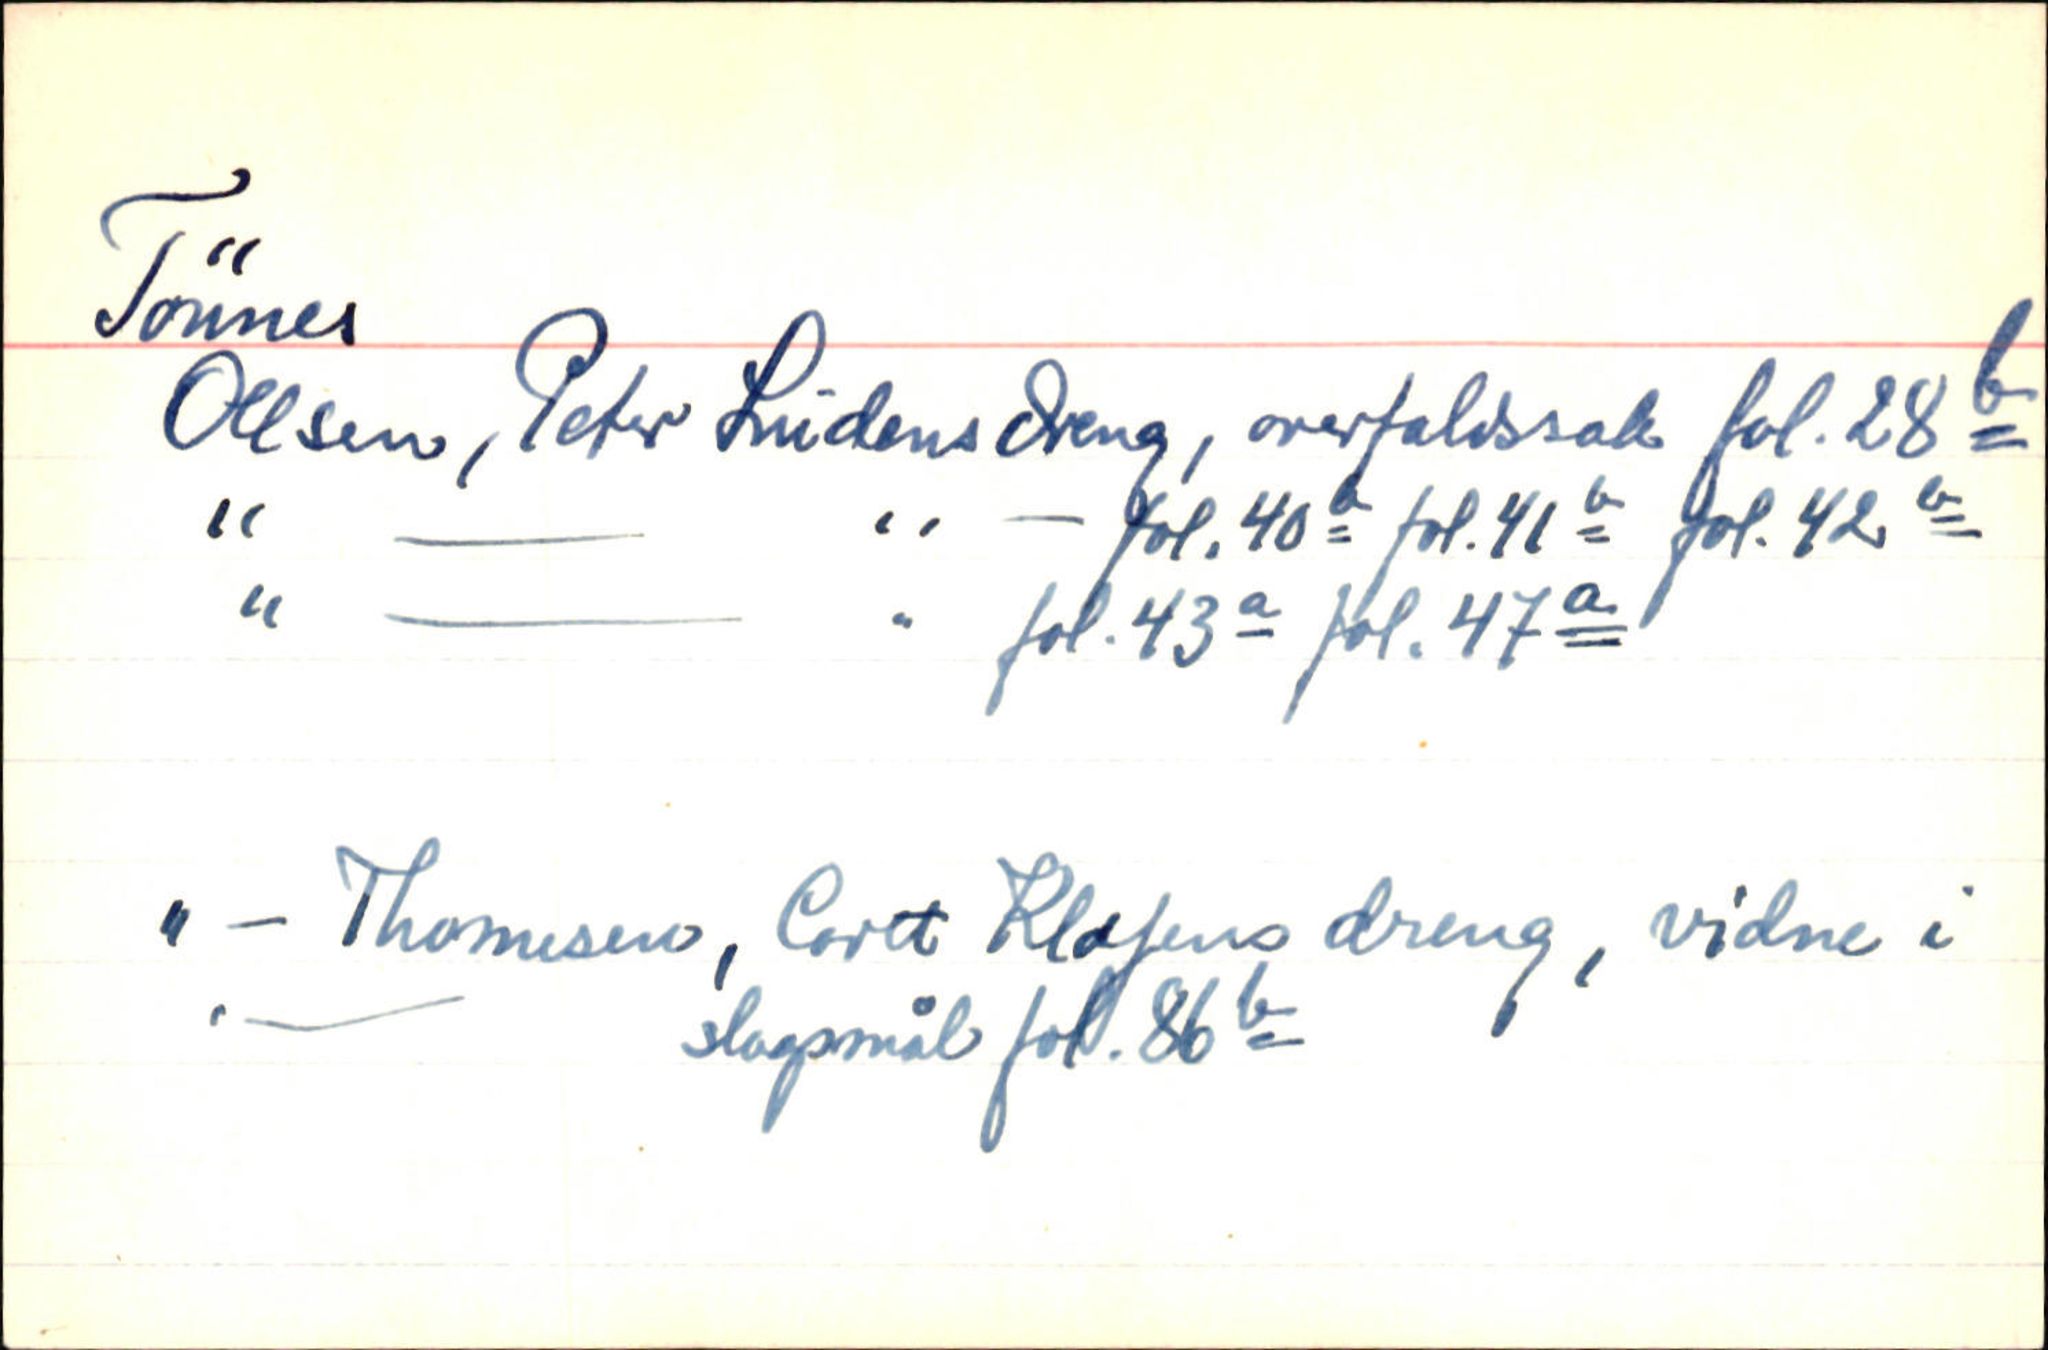 Tönnes
Ollsen, Peter Lüdens dreng, overfaldssak fol. 28 b
" — " — fol. 40 b fol. 41 b fol. 42 b
" — " fol. 43 a fol. 47 a
" — Thomesen, Cort Klafens dreng, vidne i
" — slagsmål fol. 86 b